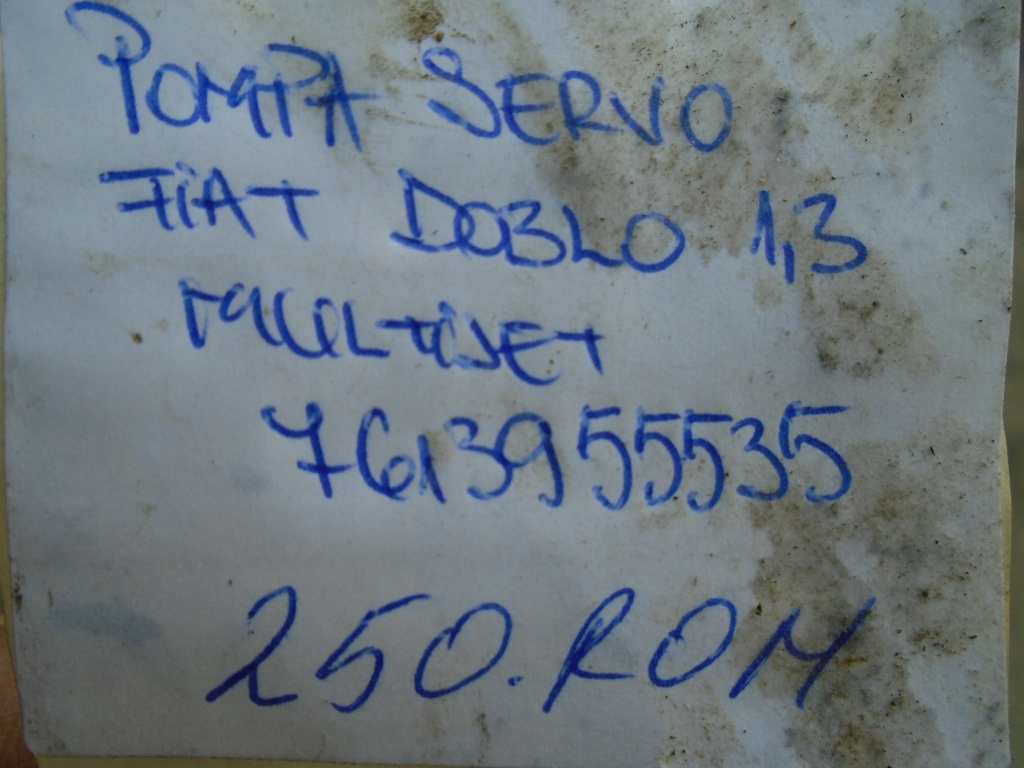 POMPA SERVO
FIAT DOBLO 1,3
MULTIJET
7613955535
250.RON